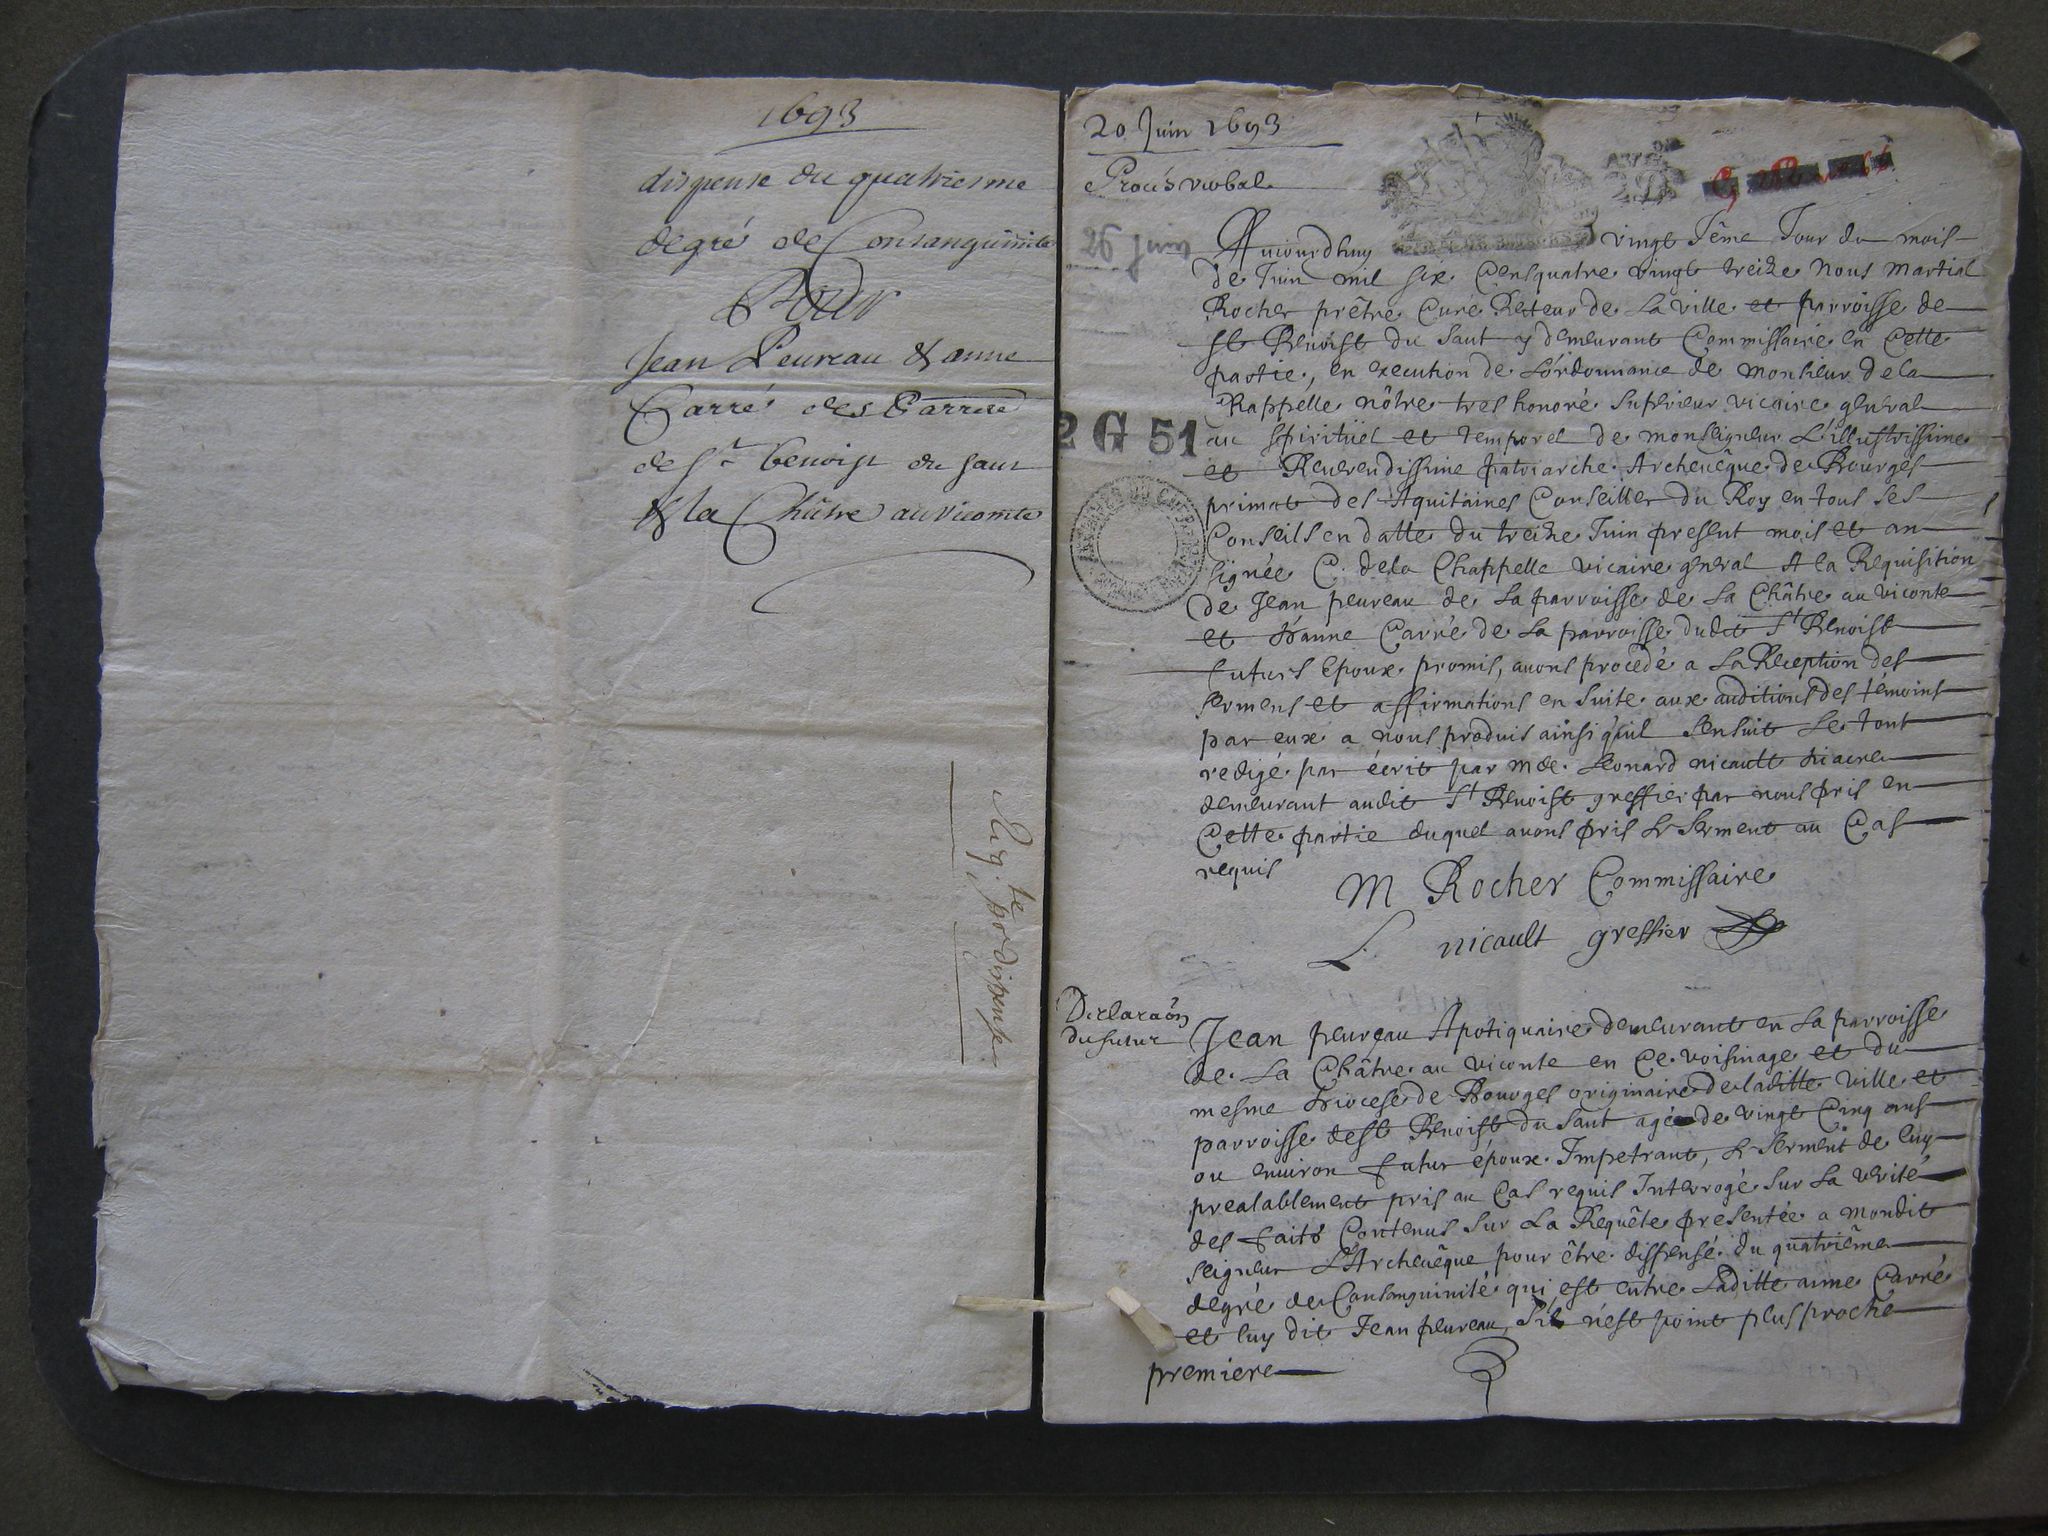 1693
dispense du quatriesme
degré de Consanguinité
Pour
Jean Peureau & anne
Carré des Parroisse
de St benoist du Saut
& la Châtre au vicomte
Enq.te po.r dispense
20 Juin 1693
Procés verbal
26 Juin
2 G 51
Aujourdhuy vingt Sême Jour du mois
de Juin mil six Censquatre vingt treize Nous Martial
Rocher prêtre Curé Recteur de La ville et parroisse de
st Benoist du Saut y demeurant Commissaire en Cette
partie, en execution de L'órdonnance de Monsieur de la
Chappelle nôtre tres honoré Superieur vicaire general
au spirituel et temporel de Monseigneur L'illustrissime
et Reuerendissime patriarche Archeuêque de Bourges
primat des Aquitaines Conseiller du Roy en tous ses
Conseils en datte du treize Juin present mois et an
signée C. dela Chappelle vicaire gneral A la Requisition
de Jean peureau de La parroisse de La Châtre au viconte
et D'anne Carré de La parroisse dudit St Benoist
futurs Epoux promis, auons procedé a La Reception des
sermens et affirmations en suite aux auditions des témoins
par eux a nous produis ainsi qu'il s'ensuit Le tout
redigé par écrit par Me. Leonard nicault diacre
demeurant audit St Benoist greffier par nous pris en
Cette partie duquel auons pris Le serment au Cas
requis
M Rocher Commissaire
L. nicault greffier
Declaraôn
du futur
Jean peureau Apotiquaire demeurant en La parroisse
de La Châtre au viconte en Ce voisinage et du
mesme Diocese de Bourges originaire de laditte ville et
parroisse de st Benoist du Saut agé de vingt Cinq ans
ou enuiron futur époux Impetrant, Le serment de luy
prealablement pris au Cas requis Interrogé Sur La verité
des faits Contenus Sur La Requête presentée a mondit
seigneur L'Archeuêque pour être dispensé du quatriême
degré de Consanguinité qui est entre Laditte anne Carré
et luy dit Jean peureau, S'il n'est point plus proche
premiere